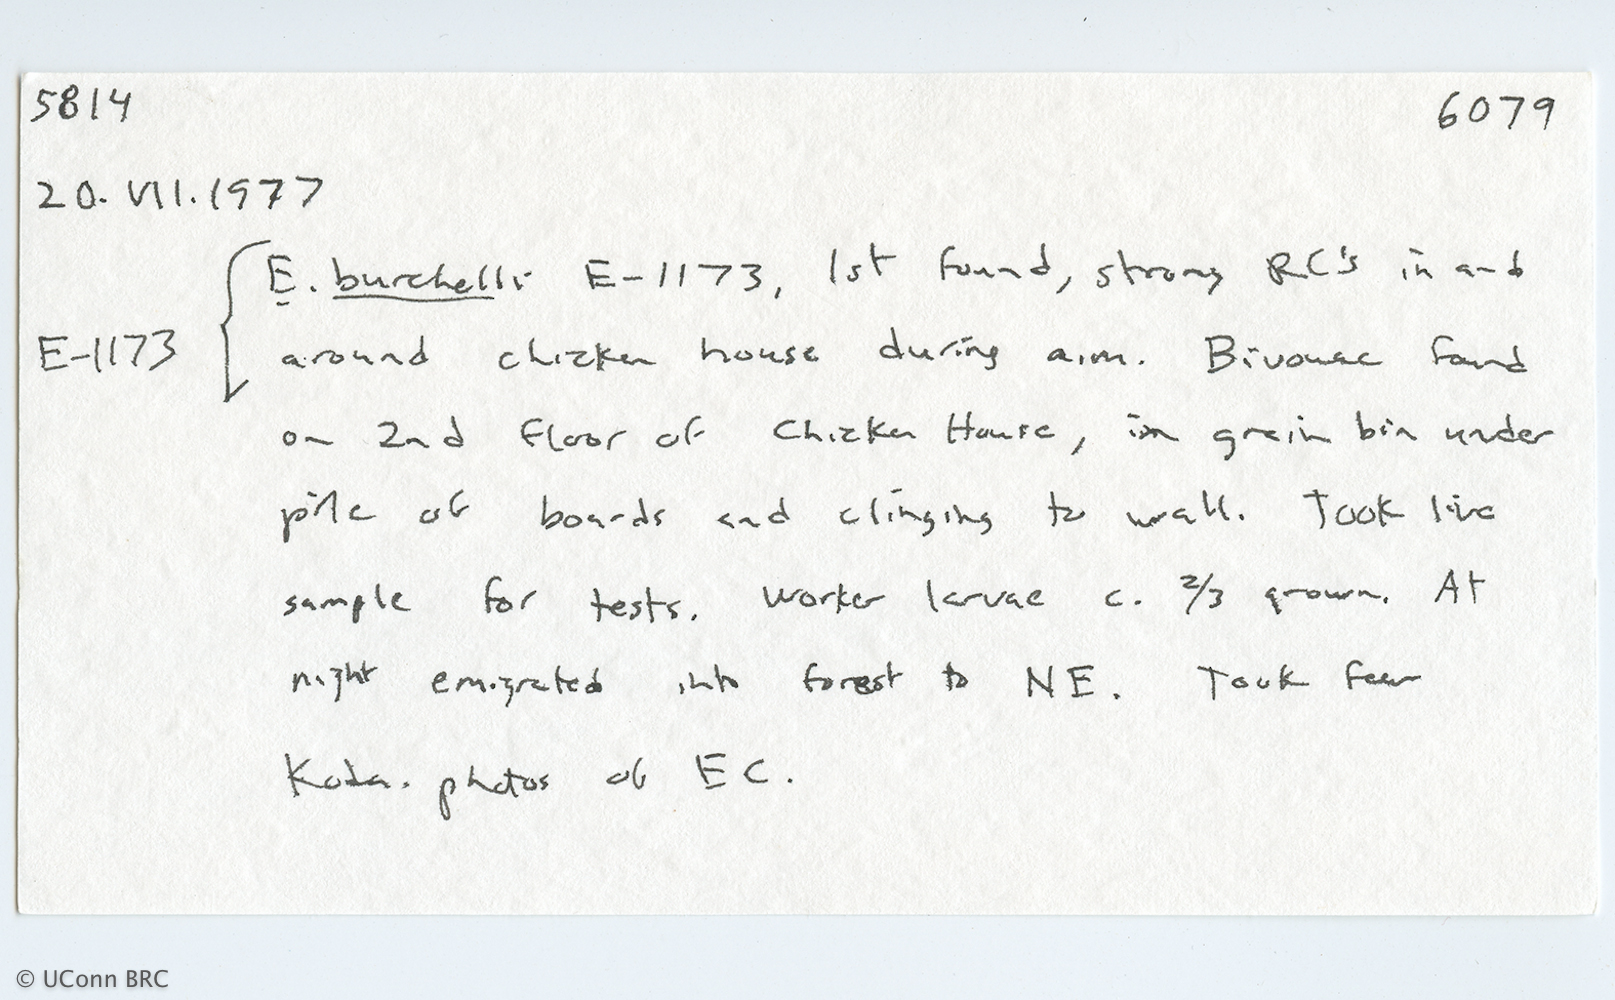 5814 6079
20. VII. 1977
E. burchelli E-1173, 1st found, strong RC's in and
E-1173 around chicken house during a.m. Bivouac found
on 2nd floor of Chicken House, in grain bin under
pile of boards and clinging to wall. Took live
sample for tests. Worker larvae c. 2/3 grown. At
night emigrated into forest to NE. Took few
Koda. photos of EC.
© UConn BRC